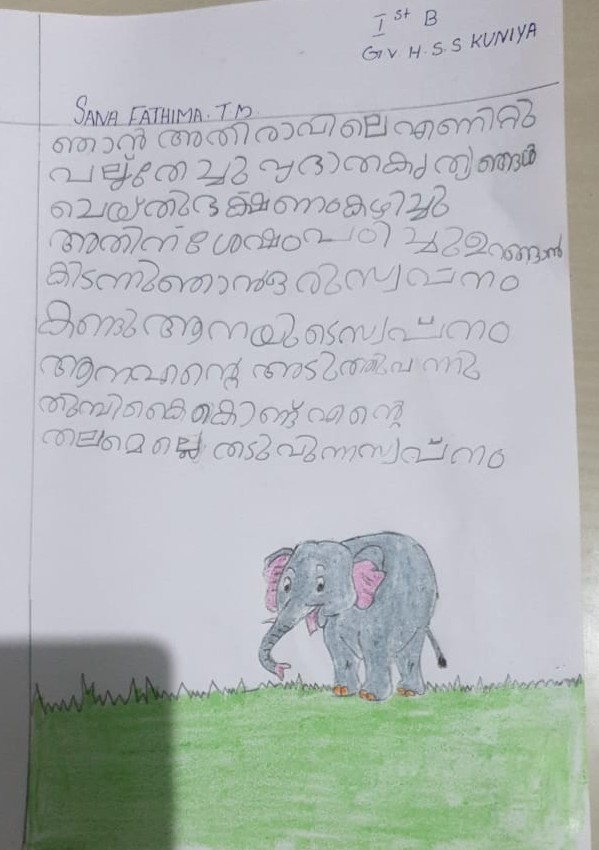 Ist B
G.V.H.S.S KUNIYA
SANA FATHIMA.T.M
ഞാൻ അതിരാവിലെ എണിറ്റു
പല്ല്തേച്ചു പ്രദാതകൃത്യങ്ങൾ
ചെയ്തുഭക്ഷണംകഴിച്ചു
അതിന് ശേഷം പഠിച്ചു ഉറങ്ങാൻ
കിടന്നുഞാൻഒരുസ്വപ്നം
കണ്ടു ആനയുടെസ്വപ്നം
ആനഎന്റെ അടുത്ത് വന്നു
തുമ്പികൈകൊണ്ട് എന്റെ
തലമെല്ലെ തടവുന്നസ്വപ്നം